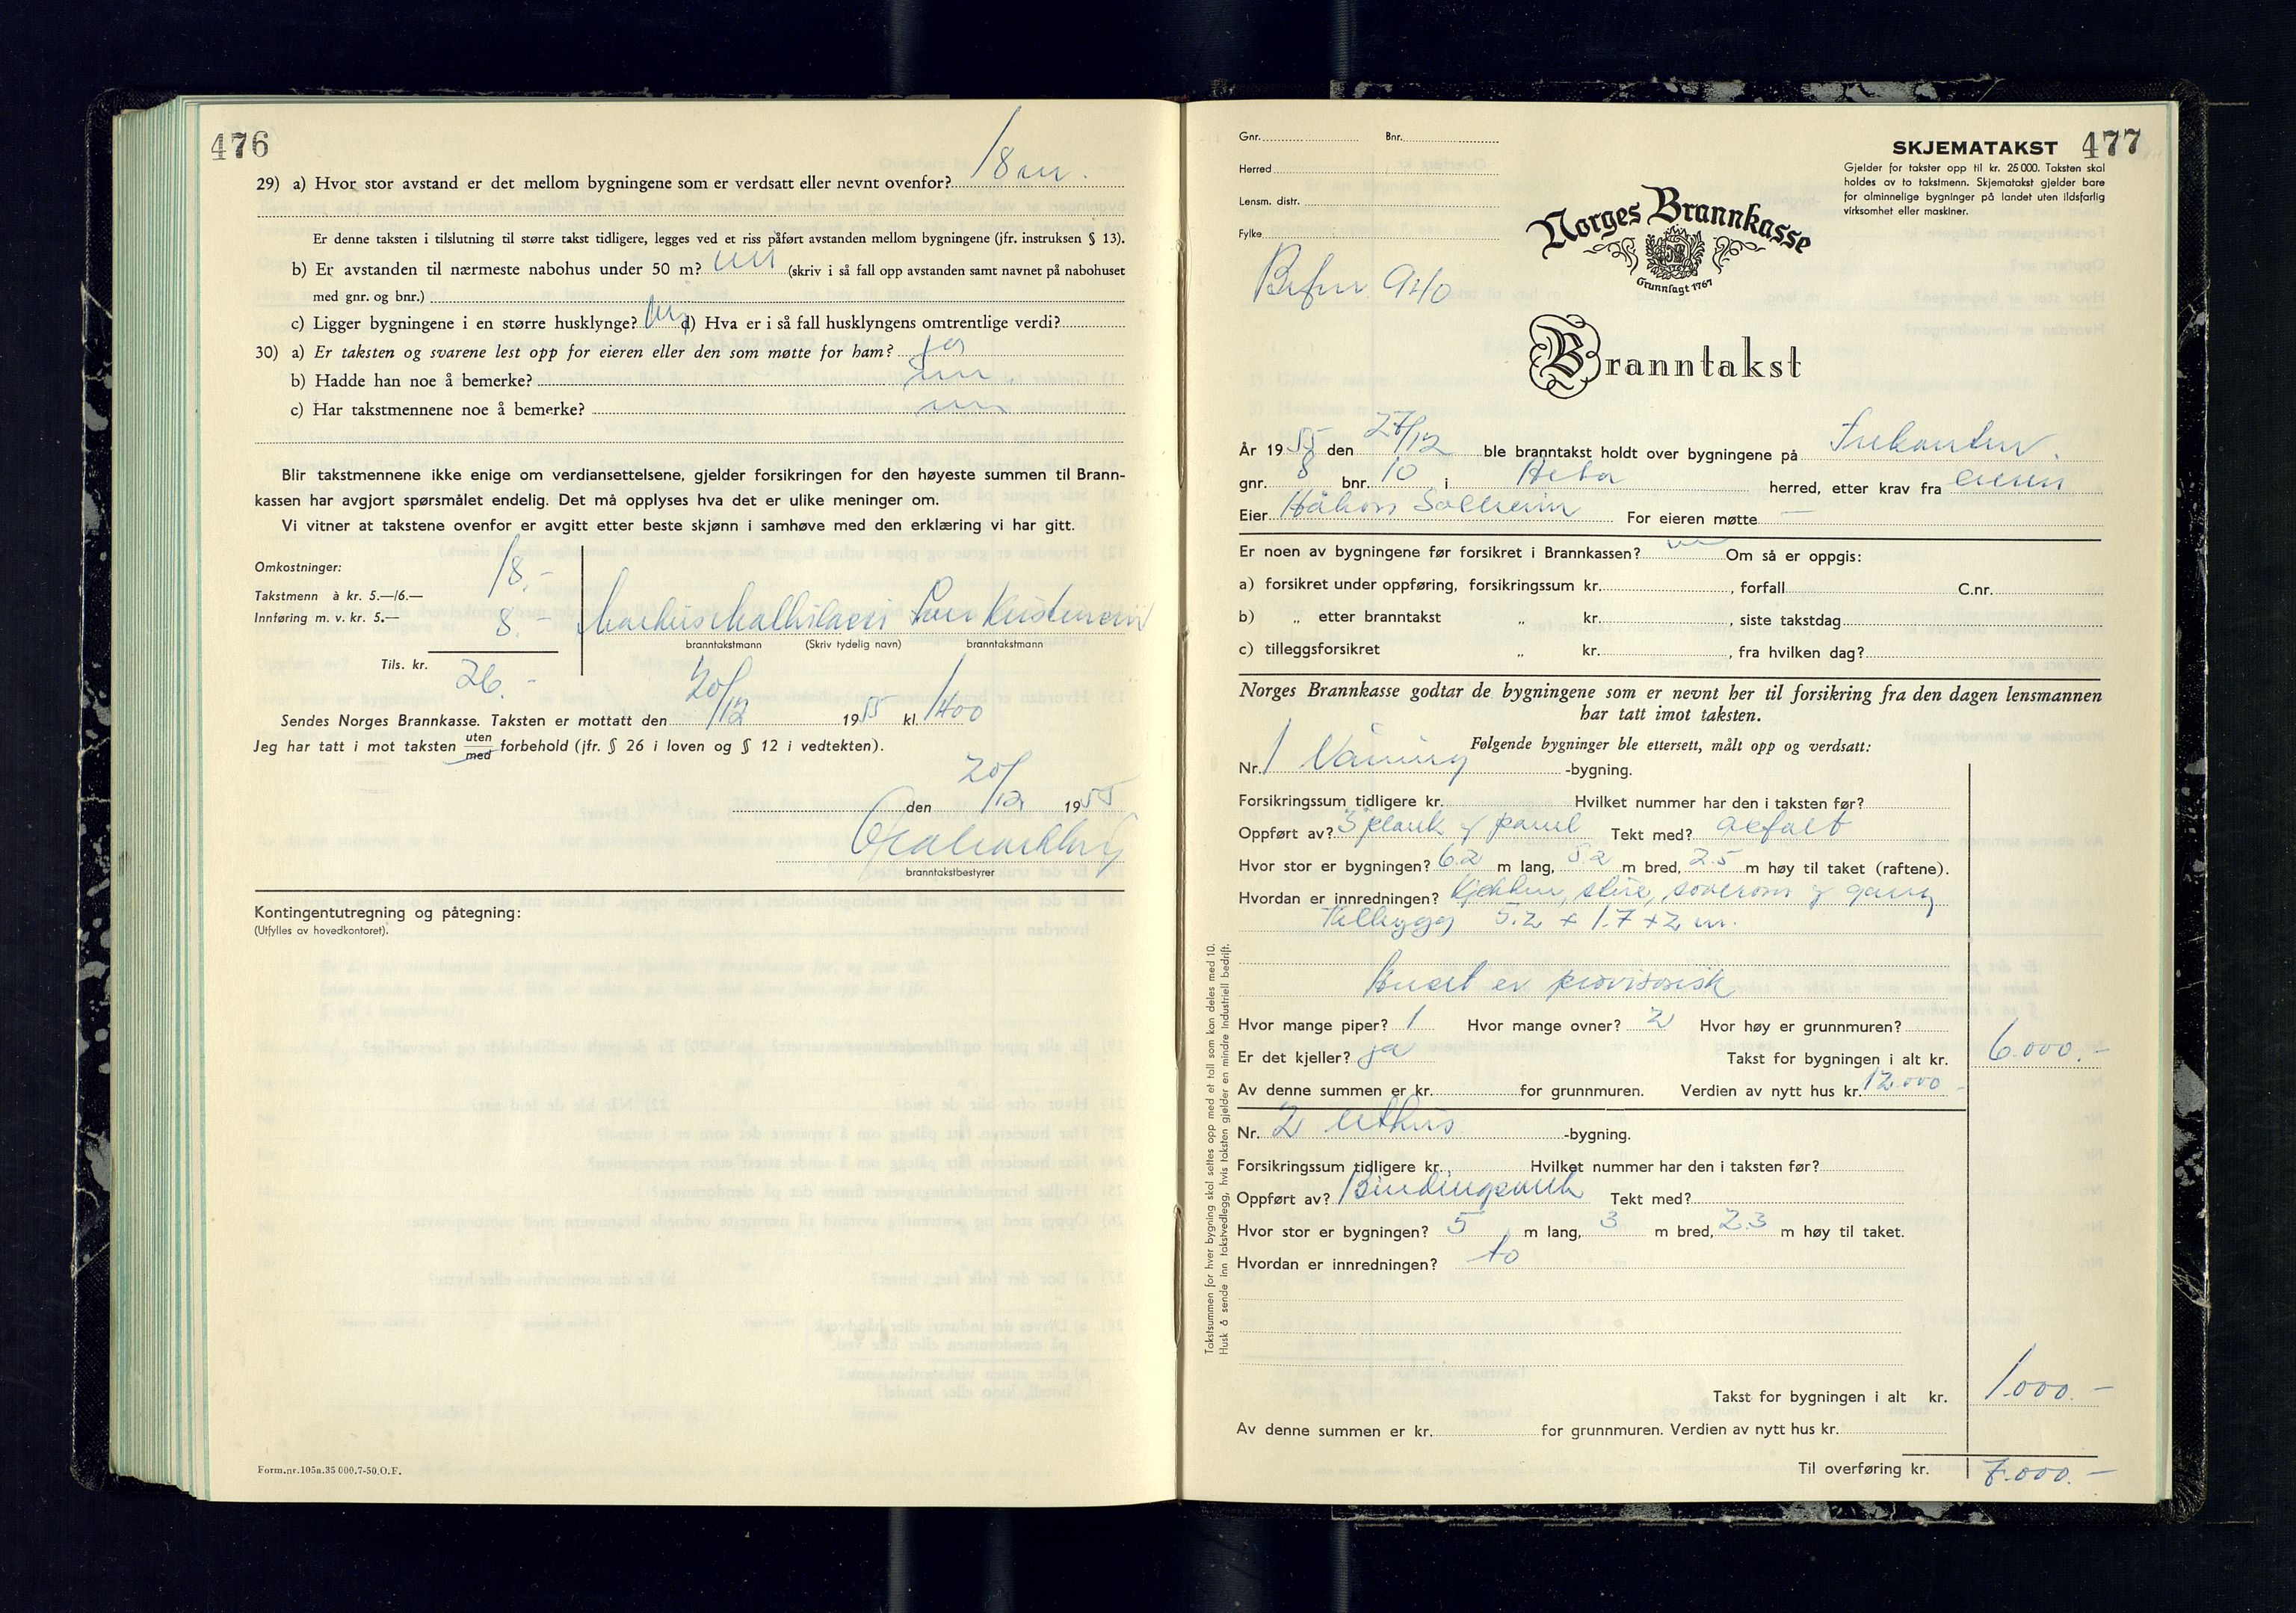 476
29) a) Hvor stor avstand er det mellom bygningene som er verdsatt eller nevnt ovenfor? 18 m.
Er denne taksten i tilslutning til større takst tidligere, legges ved et riss påført avstanden mellom bygningene (jfr. instruksen § 13).
b) Er avstanden til nærmeste nabohus under 50 m? nei (skriv i så fall opp avstanden samt navnet på nabohuset
med gnr. og bnr.)
c) Ligger bygningene i en større husklynge? nei d) Hva er i så fall husklyngens omtrentlige verdi?
30) a) Er taksten og svarene lest opp for eieren eller den som møtte for ham? ja
b) Hadde han noe å bemerke? nei.
c) Har takstmennene noe å bemerke? nei
Blir takstmennene ikke enige om verdiansettelsene, gjelder forsikringen for den høyeste summen til Brann-
kassen har avgjort spørsmålet endelig. Det må opplyses hva det er ulike meninger om.
Vi vitner at takstene ovenfor er avgitt etter beste skjønn i samhøve med den erklæring vi har gitt.
Omkostninger:
Takstmenn à kr. 5.—/6.— 18.-
Innføring m. v. kr. 5.— 8.-
branntakstmann (Skriv tydelig navn) branntakstmann
Tils. kr. 26.-
Sendes Norges Brannkasse. Taksten er mottatt den 20/12 1955 kl. 1400
Jeg har tatt i mot taksten uten/med forbehold (jfr. § 26 i loven og § 12 i vedtekten).
den 20/12 1955
branntakstbestyrer
Kontingentutregning og påtegning:
(Utfylles av hovedkontoret).
Form.nr.105a.35 000.7-50.O.F.
Gnr. Bnr.
Herred
Lensm. distr.
Fylke
940
SKJEMATAKST 477
Gjelder for takster opp til kr. 25 000. Taksten skal
holdes av to takstmenn. Skjematakst gjelder bare
for alminnelige bygninger på landet uten ildsfarlig
virksomhet eller maskiner.
Norges Brannkasse
Grunnlagt 1767
Branntakst
År 1955 den 27/12 ble branntakst holdt over bygningene på
gnr. 8 bnr. 10 i herred, etter krav fra eieren
Eier Håkon Solheim For eieren møtte —
Er noen av bygningene før forsikret i Brannkassen? nei Om så er oppgis:
a) forsikret under oppføring, forsikringssum kr. , forfall C.nr.
b) „ etter branntakst „ kr. , siste takstdag
c) tilleggsforsikret „ kr. , fra hvilken dag?
Norges Brannkasse godtar de bygningene som er nevnt her til forsikring fra den dagen lensmannen
har tatt imot taksten.
Følgende bygninger ble ettersett, målt opp og verdsatt:
Nr. 1 Våning -bygning.
Forsikringssum tidligere kr. Hvilket nummer har den i taksten før?
Oppført av? 3" plank og panel Tekt med? asfalt
Hvor stor er bygningen? 6.2 m lang, 5.2 m bred, 2.5 m høy til taket (raftene).
Hvordan er innredningen? Kjøkken, stue, soverom og gang
Tilbygg 5.2 + 1.7 + 2 m.
Huset er provisorisk
Hvor mange piper? 1 Hvor mange ovner? 2 Hvor høy er grunnmuren?
Er det kjeller? ja Takst for bygningen i alt kr. 6.000.-
Av denne summen er kr. for grunnmuren. Verdien av nytt hus kr. 12.000-
Nr. 2 Uthus -bygning.
Forsikringssum tidligere kr. Hvilket nummer har den i taksten før?
Oppført av? Bindingsverk Tekt med?
Hvor stor er bygningen? 5 m lang, 3 m bred, 2.3 m høy til taket.
Hvordan er innredningen? to
Takst for bygningen i alt kr. 1.000.-
Av denne summen er kr. for grunnmuren. Verdien av nytt hus kr.
Til overføring kr. 7.000.-
Takstsummen for hver bygning skal settes opp med et tall som kan deles med 10.
Husk å sende inn takstvedlegg, hvis taksten gjelder en mindre industriell bedrift.